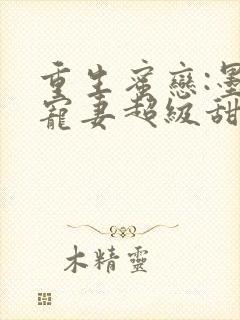 重生蜜戀:墨
寵妻超級甜
木精靈